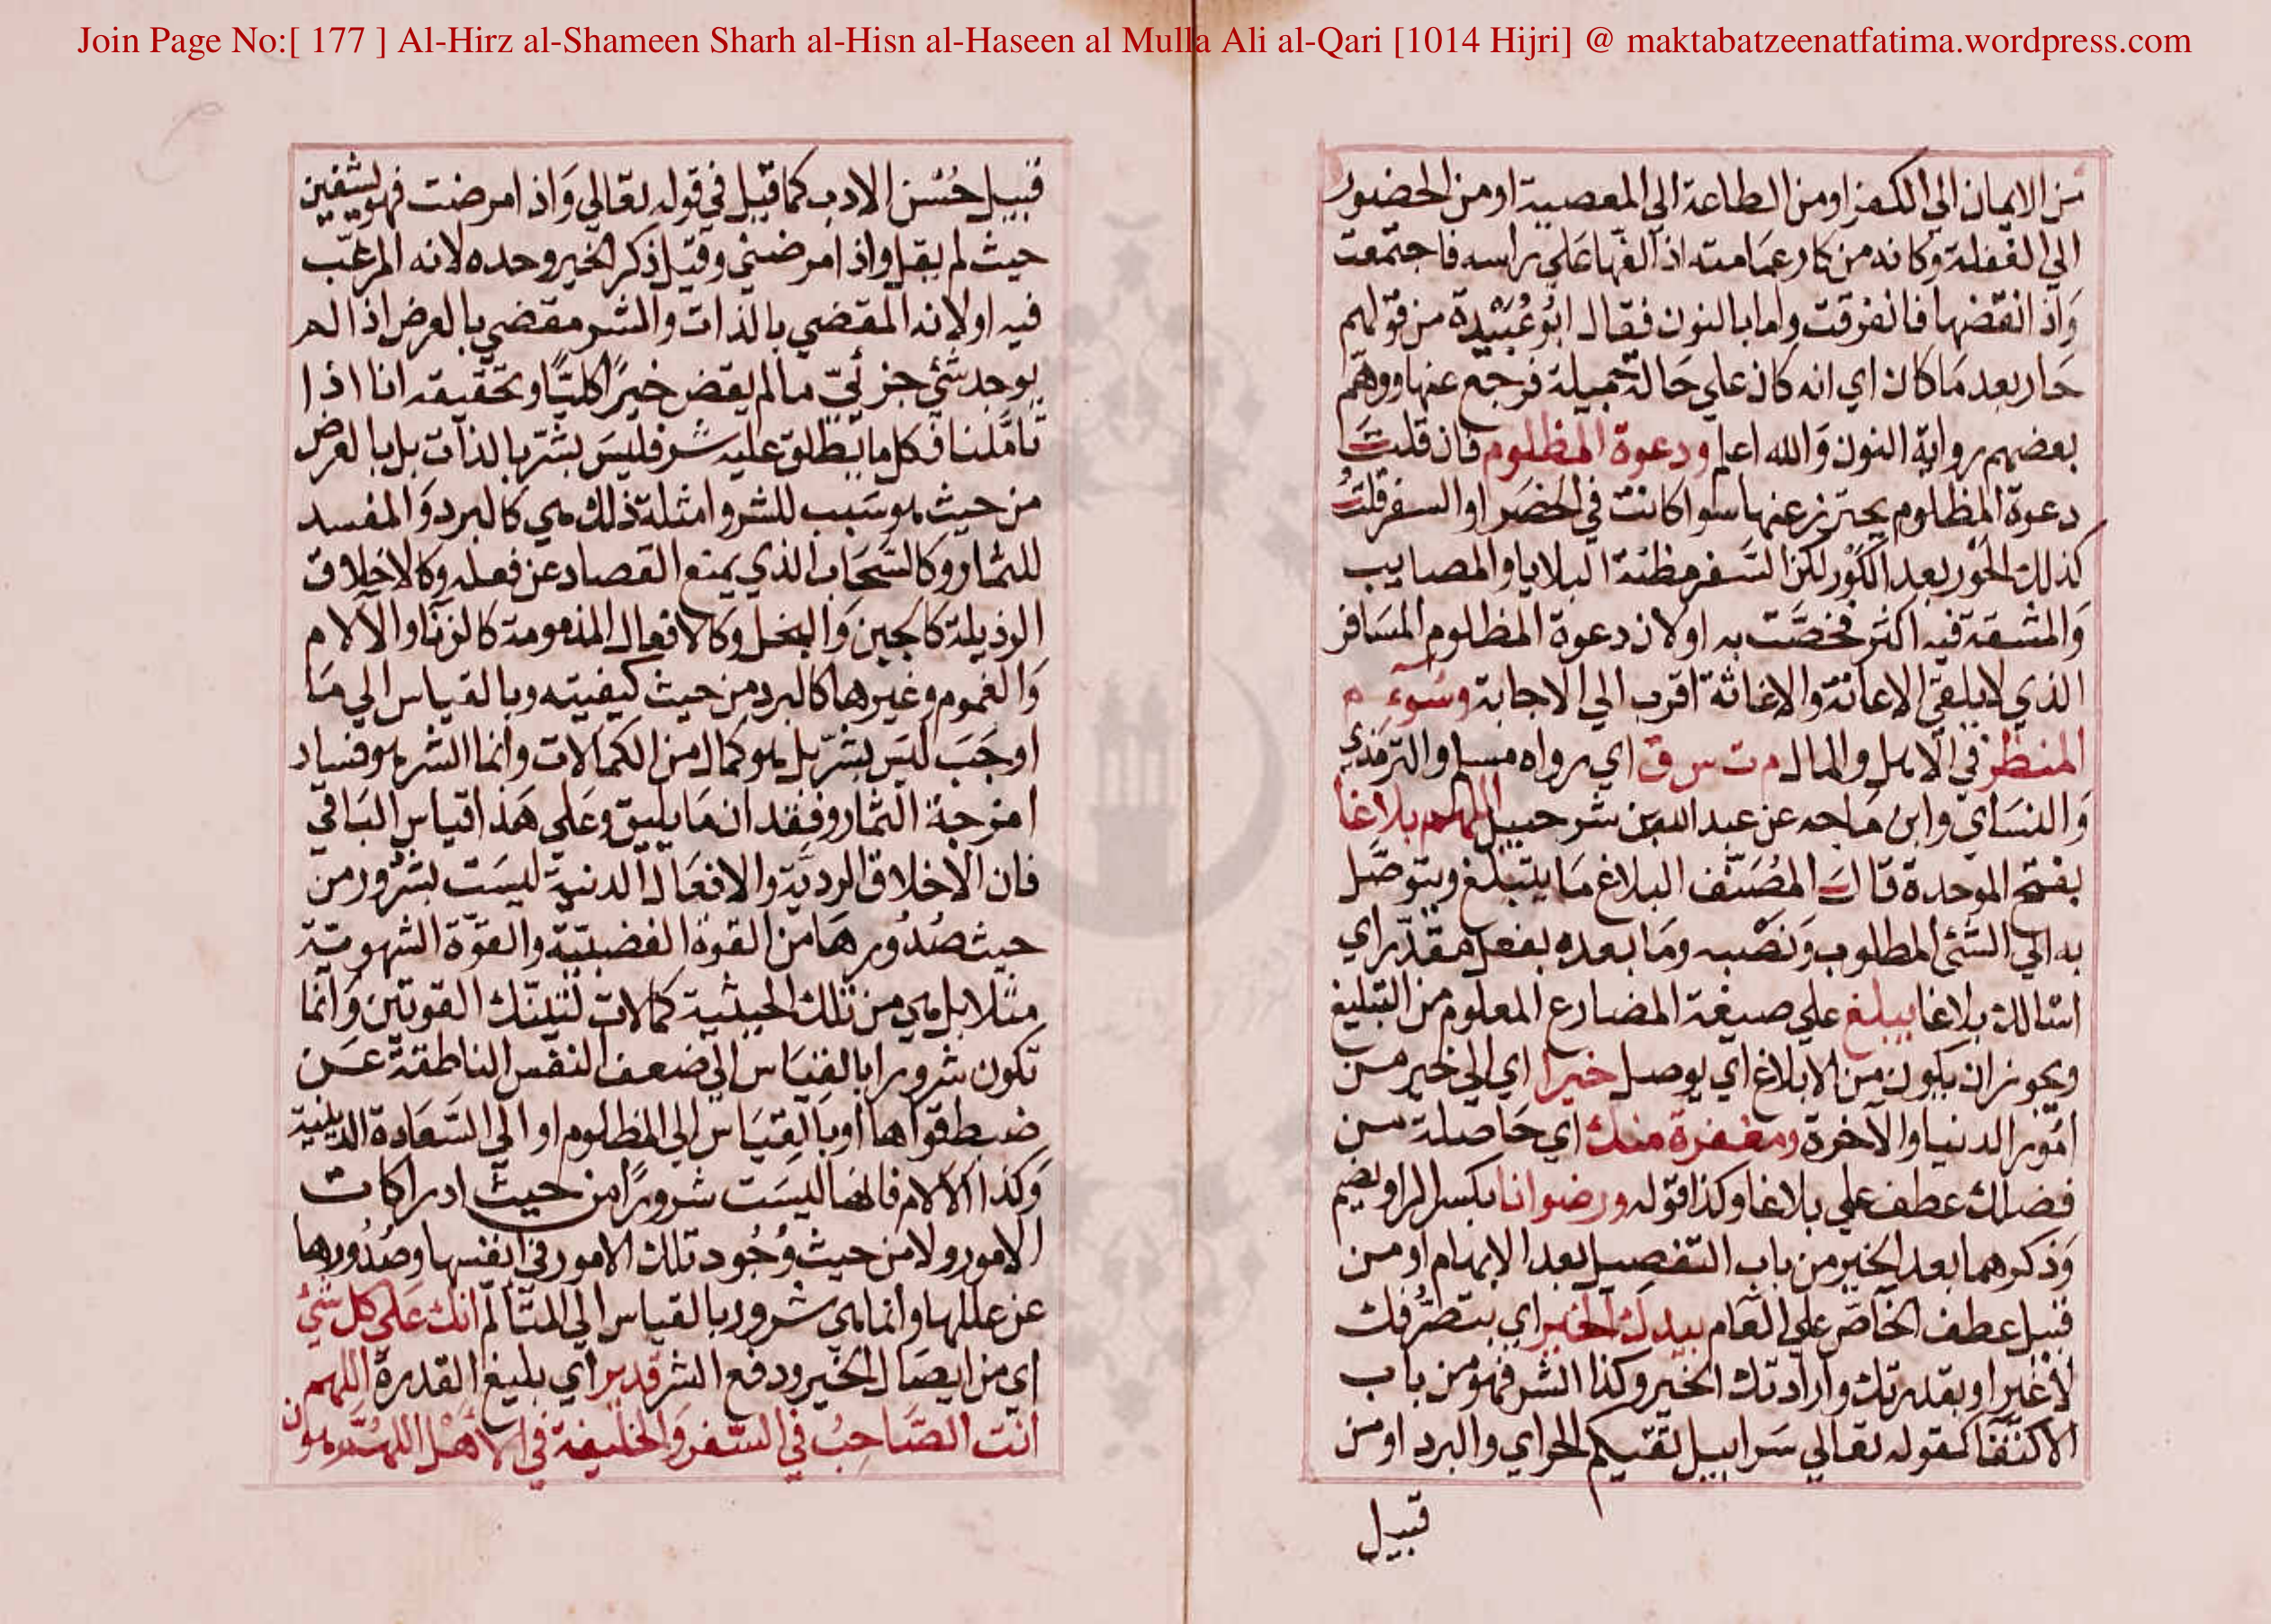 Join Page No:[ 177 ] Al-Hirz al-Shameen Sharh al-Hisn al-Haseen al Mulla Ali al-Qari [1014 Hijri] @ maktabatzeenatfatima.wordpress.com
من الايمان الي الكفر او من الطاعة الي المعصية او من الحضور
الي الغفلة وكانه من كار عمامته اذا لفها علي راسه فاجتمعت
واذا نقضها فانفرقت واما بالنون فقال ابو عبيدة من قولهم
حار بعد ما كان اي انه كان علي حالة جميلة فرجع عنها ووهم
بعضهم رواية النون والله اعلم ودعوة المظلوم فان قلت
دعوة المظلوم يحترز عنها سوا كانت في الحضر او السفر قلت
كذلك الحور بعد الكور لكن السفر مظنة البلايا والمصايب
والمشقة فيه اكثر فخصت به او لان دعوة المظلوم المسافر
الذي لا يلقي الاعانة والاغاثة اقرب الي الاجابة وسوء
المنظر في الاهل والمال م ت س ق اي رواه مسلم والترمذي
والنساي وابن ماجه عن عبد الله بن شرحبيل اللهم بلاغا
بفتح الموحدة قال المصنف البلاغ ما يتبلغ ويتوصل
به الي الشئ المطلوب ونصبه وما بعده بفعل مقدر اي
اسالك بلاغا يبلغ علي صيغة المضارع المعلوم من التبليغ
ويجوز ان يكون من الابلاغ اي يوصل خيرا اي الي خير من
امور الدنيا والآخرة ومغفرة منك اي حاصلة من
فضلك عطف علي بلاغا وكذا قوله ورضوانا بكسر الرا ويضم
وذكرهما بعد الخير من باب التفصيل بعد الابهام او من
قبيل عطف الخاص علي العام بيدك الخير اي بتصرفك
لا غير او بقدرتك وارادتك الخير وكذا الشر فهو من باب
الاكتفا كقوله تعالي سرابيل تقيكم الحر اي والبرد او من
قبيل
قبيل حسن الادب كما قيل في قوله تعالي واذا مرضت فهو يشفين
حيث لم يقل واذا امرضني وقيل ذكر الخير وحده لانه المرغب
فيه او لانه المقضي بالذات والشر مقضي بالعرض اذ الم
يوجد شئ جزئي ما لم يقض خيرا كليا وتحقيقه انا اذا
تاملنا فكل ما يطلق عليه شر فليس بشر بالذات بل بالعرض
من حيث هو سبب للشر وامثلة ذلك هي كالبرد والمفسد
للثمار وكالسحاب الذي يمنع القصاد عن فعله وكالاخلاق
الرذيلة كالجبن والبخل وكالافعال المذمومة كالزنا والآلام
والغموم وغيرها كالبرد من حيث كيفيته وبالقياس الي ما
اوجب ليس بشر بل هو كمال من الكمالات وانما الشر هو فساد
امزجة الثمار وفقدان ما يليق وعلي هذا قياس الباقي
فان الاخلاق الردية والافعال الدنية ليست بشرور من
حيث صدورها من القوة الغضبية والقوة الشهوية
مثلا بل هي من تلك الحيثية كمالات لتينك القوتين وانما
تكون شرورا بالقياس الي ضعف النفس الناطقة عن
ضبط قواها او بالقياس الي المظلوم او الي السعادة الدينية
وكذا الآلام فانها ليست شرورا من حيث ادراكات
الامور ولا من حيث وجود تلك الامور في انفسها وصدورها
عن عللها وانما هي شرور بالقياس الي المتالم انك علي كل شئ
اي من ايصال الخير ودفع الشر قدير اي بليغ القدرة اللهم
انت الصاحب في السفر والخليفة في الاهل اللهم هون